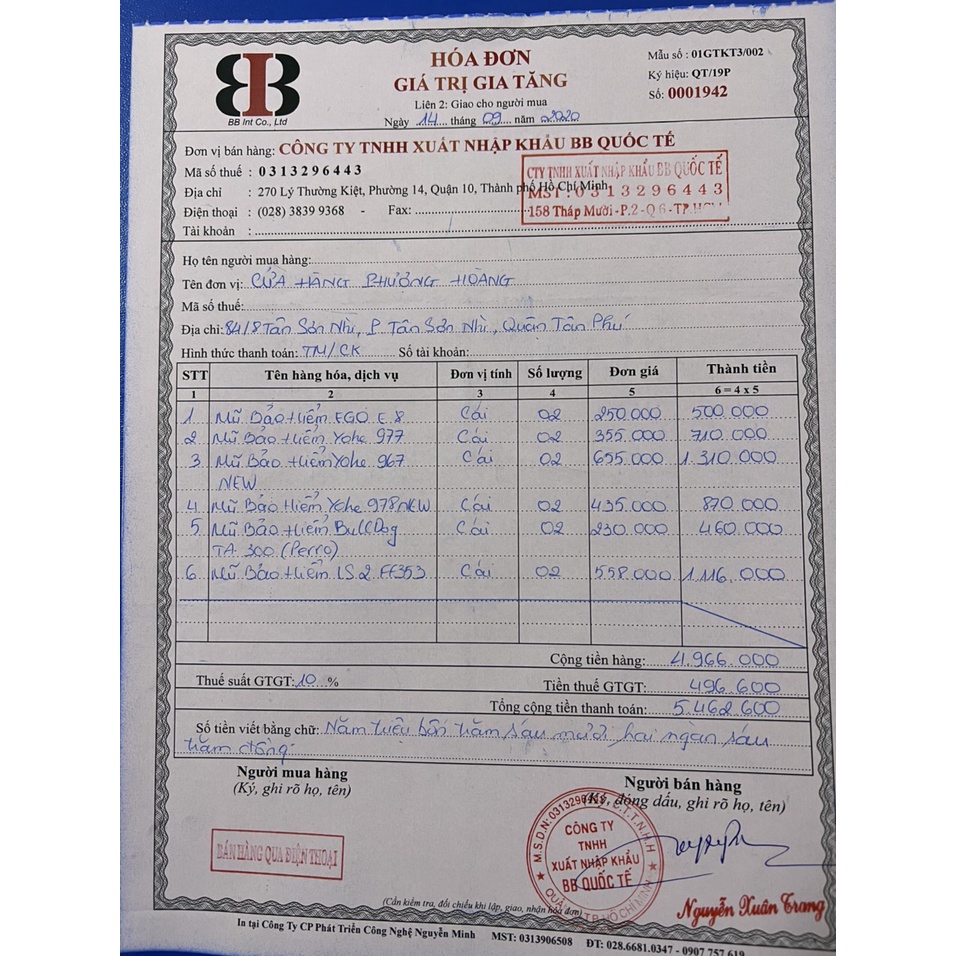 BB Int Co., Ltd
HÓA ĐƠN
GIÁ TRỊ GIA TĂNG
Liên 2: Giao cho người mua
Ngày 14 tháng 09 năm 2020
Mẫu số : 01GTKT3/002
Ký hiệu: QT/19P
Số: 0001942
Đơn vị bán hàng: CÔNG TY TNHH XUẤT NHẬP KHẨU BB QUỐC TẾ
Mã số thuế : 0313296443
Địa chỉ : 270 Lý Thường Kiệt, Phường 14, Quận 10, Thành phố Hồ Chí Minh
Điện thoại : (028) 3839 9368 - Fax:
Tài khoản :
CTY TNHH XUẤT NHẬP KHẨU BB QUỐC TẾ
MST: 0313296443
158 Tháp Mười-P.2-Q6-TP.HCM
Họ tên người mua hàng:
Tên đơn vị: CỬA HÀNG PHƯỢNG HOÀNG
Mã số thuế:
Địa chỉ: 84/8 Tân Sơn Nhì, P Tân Sơn Nhì, Quận Tân Phú
Hình thức thanh toán: TM/CK Số tài khoản:
STT Tên hàng hóa, dịch vụ Đơn vị tính Số lượng Đơn giá Thành tiền
1 2 3 4 5 6 = 4 x 5
1 Mũ Bảo Hiểm EGO E 8 Cái 02 250.000 500.000
2 Mũ Bảo Hiểm Yohe 977 Cái 02 355.000 710.000
3 Mũ Bảo Hiểm Yohe 967 Cái 02 655.000 1.310.000
NEW
4 Mũ Bảo Hiểm Yohe 978 NEW Cái 02 435.000 870.000
5 Mũ Bảo Hiểm BullDog Cái 02 230.000 460.000
TA 300 (Perro)
6 Mũ Bảo Hiểm LS2 FF353 Cái 02 558.000 1.116.000
Cộng tiền hàng: 4.966.000
Thuế suất GTGT: 10 % Tiền thuế GTGT: 496.600
Tổng cộng tiền thanh toán: 5.462.600
Số tiền viết bằng chữ: Năm triệu bốn trăm sáu mươi hai ngàn sáu
trăm đồng
Người mua hàng
(Ký, ghi rõ họ, tên)
Người bán hàng
(Ký, đóng dấu, ghi rõ họ, tên)
BÁN HÀNG QUA ĐIỆN THOẠI
CÔNG TY
TNHH
XUẤT NHẬP KHẨU
BB QUỐC TẾ
Nguyễn Xuân Trang
(Cần kiểm tra, đối chiếu khi lập, giao, nhận hóa đơn)
In tại Công Ty CP Phát Triển Công Nghệ Nguyễn Minh MST: 0313906508 ĐT: 028.6681.0347 - 0907 757 619